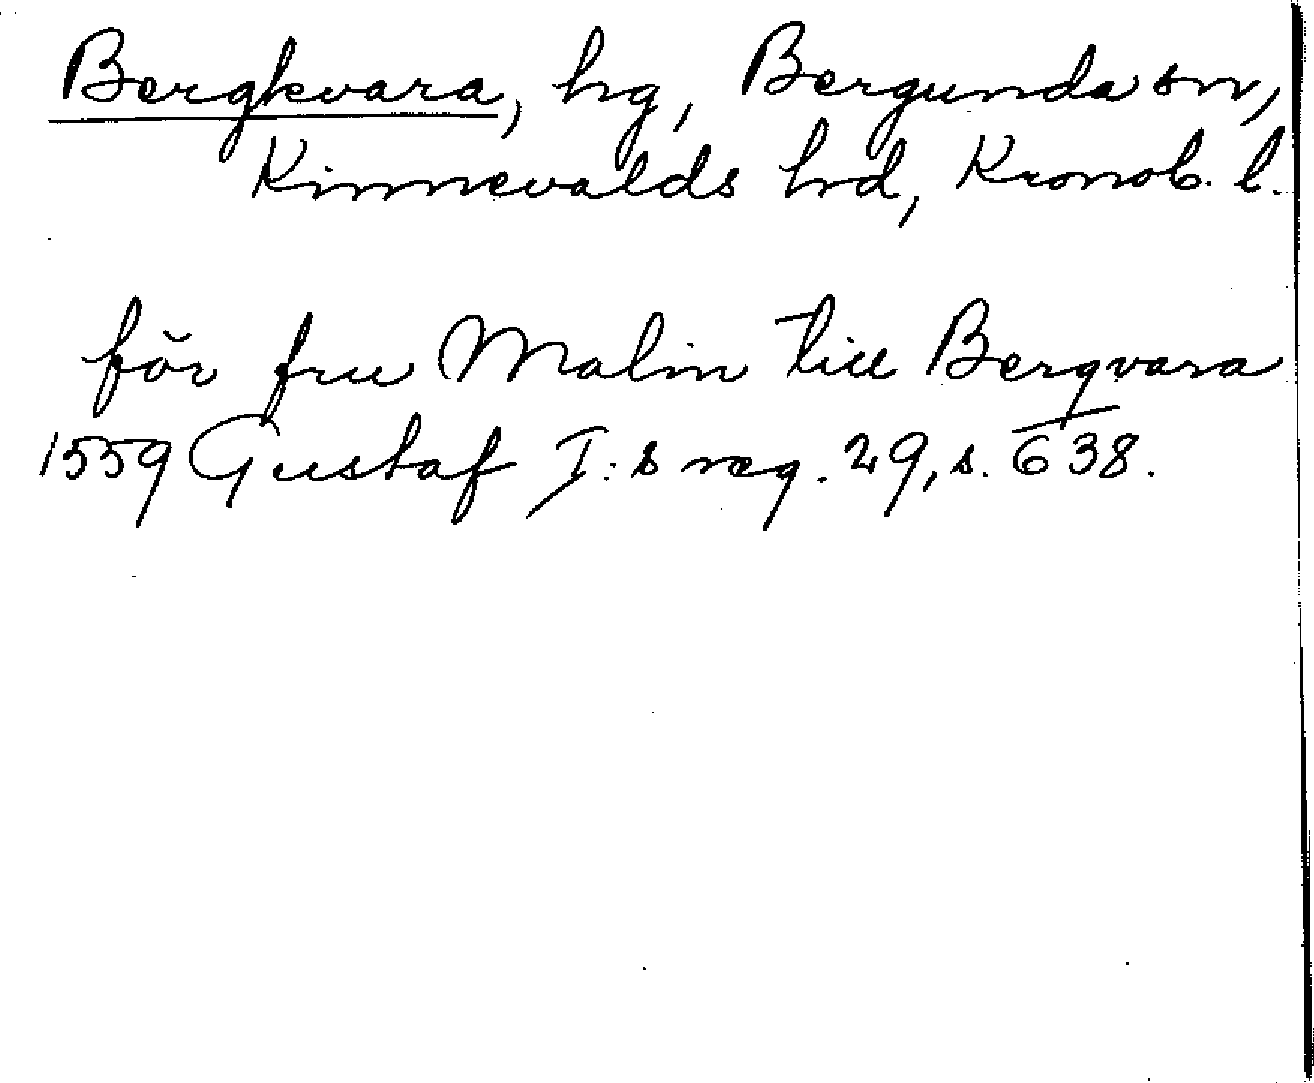 Bergkvara, hg, Bergunda sn,
Kinnevalds hrd, Kronob. l.
för fru Malin till Bergqvara
1559 Gustaf I:s reg. 29, s. 638.